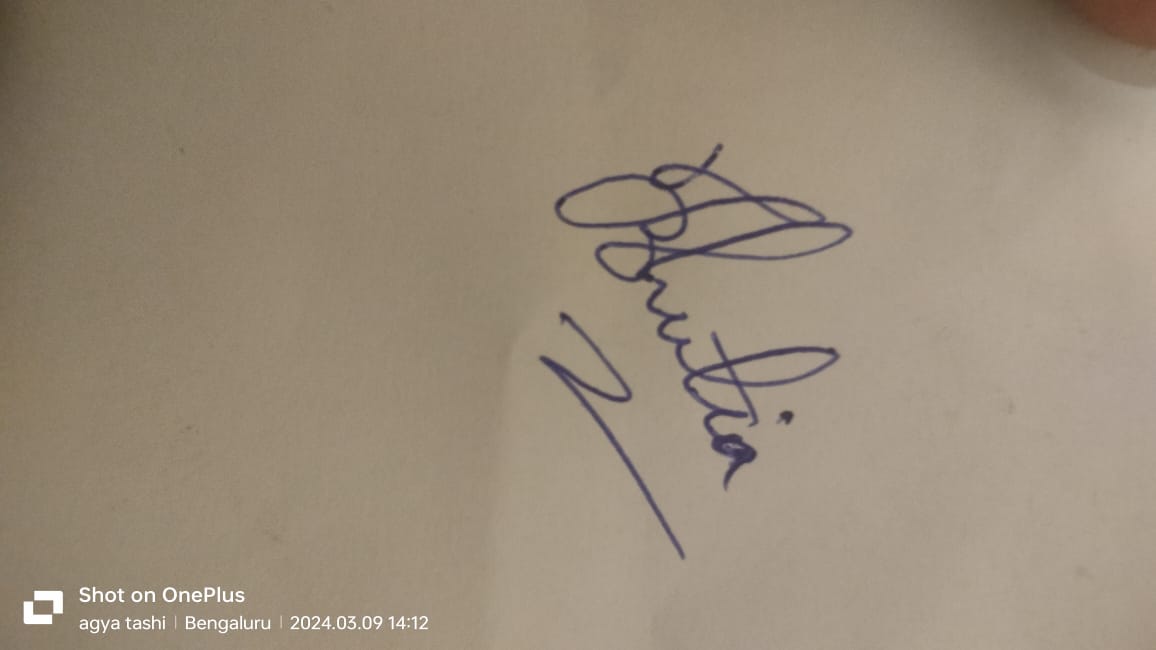 Bhutia
Shot on OnePlus
agya tashi | Bengaluru | 2024.03.09 14:12